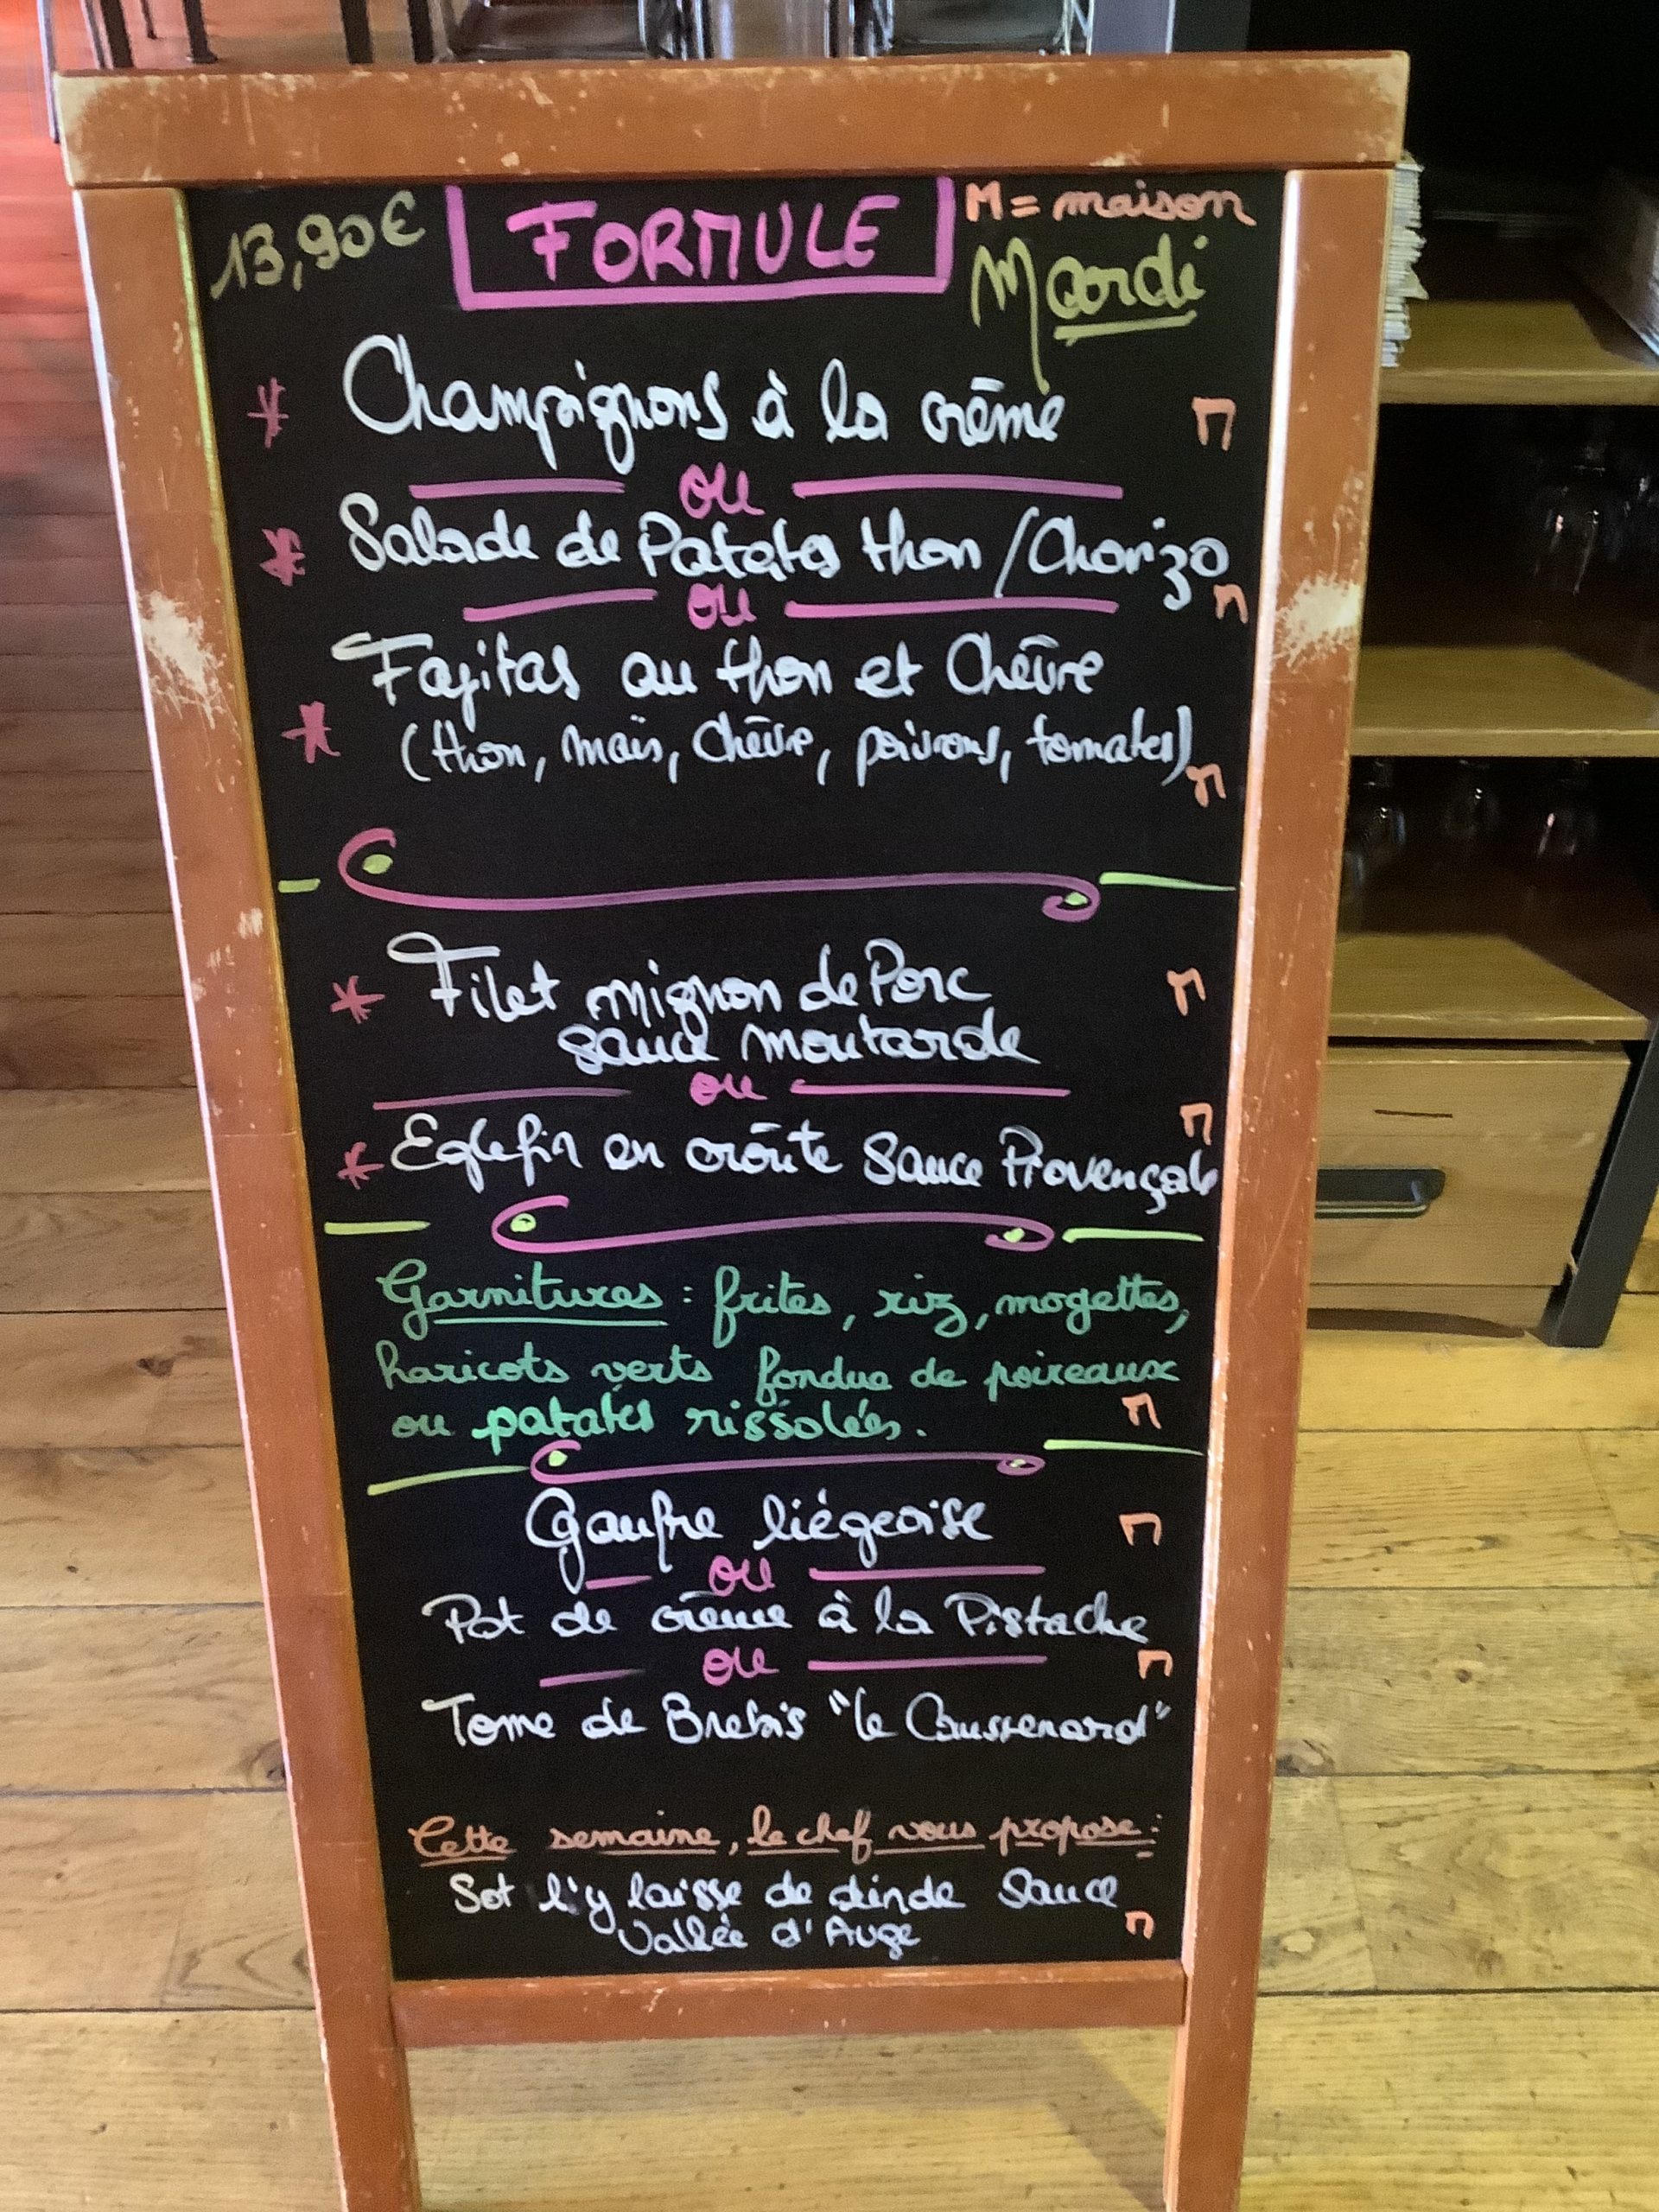 13,90€ FORMULE M = maison
Mardi
* Champignons à la crème M
ou
* Salade de Patates thon / Chorizo M
ou
Fajitas au thon et Chèvre
* (thon, maïs, Chèvre, poivrons, tomates) M
* Filet mignon de Porc M
sauce moutarde
ou
* Eglefin en croûte sauce Provençale M
Garnitures : frites, riz, mogettes,
haricots verts fondue de poireaux
ou patates rissolées. M
Gaufre liégeoise M
ou
Pot de crème à la Pistache M
ou
Tome de Brebis "le Caussenard"
Cette semaine, le chef vous propose :
Sot l'y laisse de dinde Sauce
Vallée d'Auge M